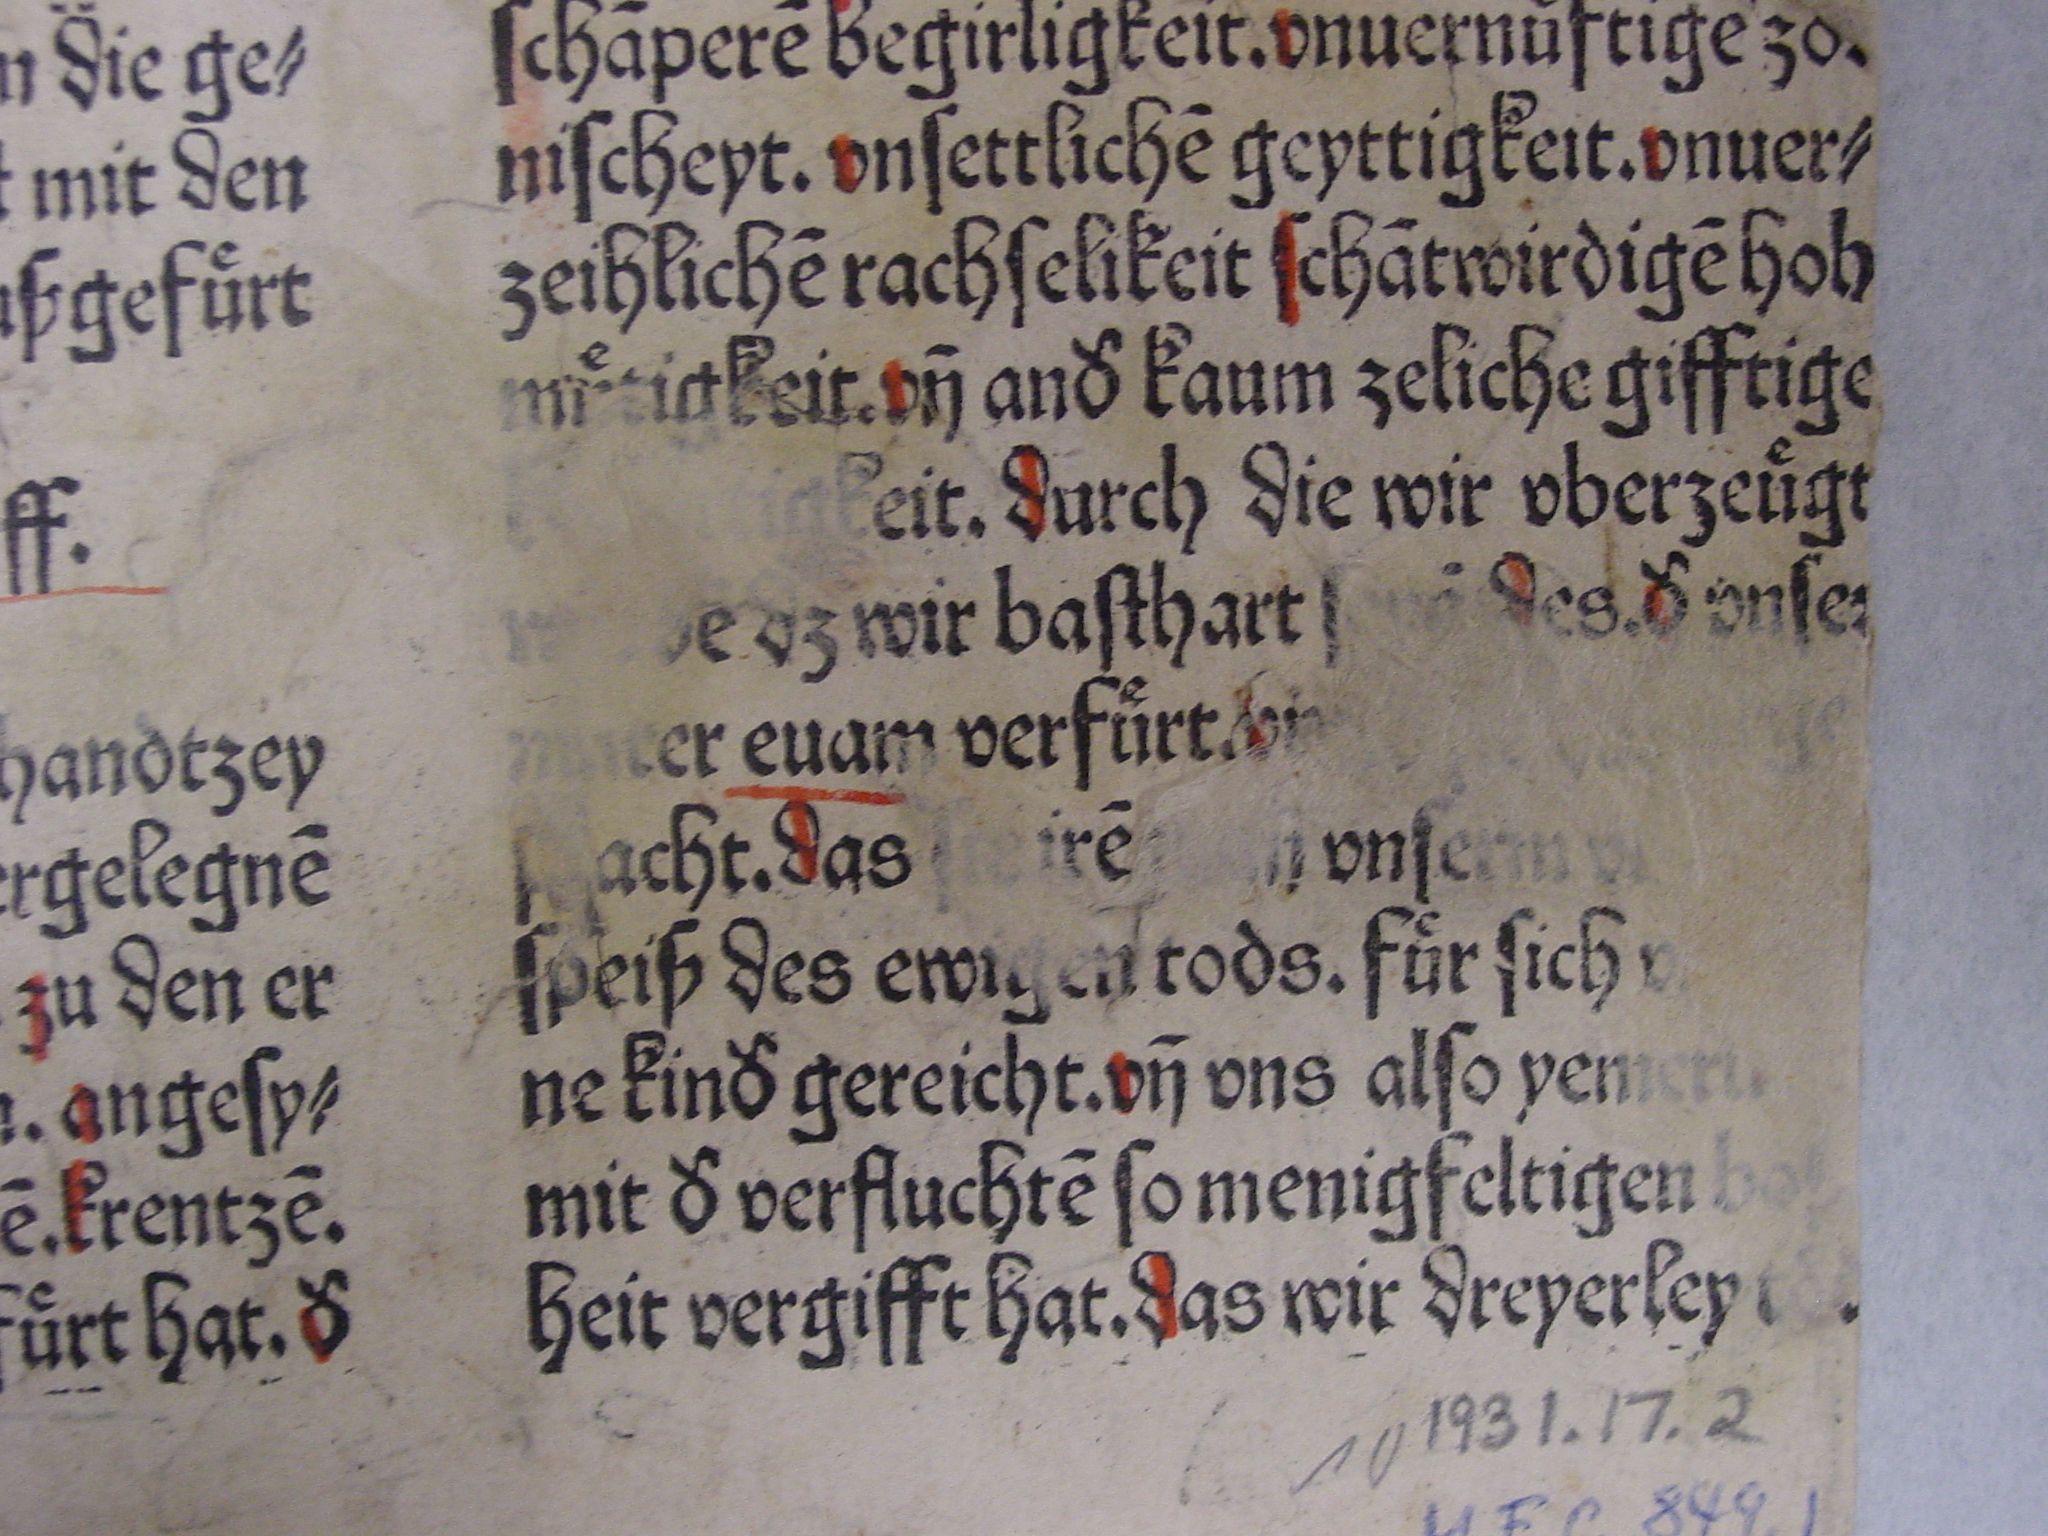 n die ge⸗
mit den
ußgefuͤrt
ff.
handtzey
ergelegnē
zu den er
angesy⸗
ē. krentzē.
fuͤrt hat. đ
schāperē begirligkeit. vnuernůftige zo.
nischeyt. vnsettlichē geyttigkeit. vnuer⸗
zeihlichē rachselikeit schātwirdigē hoh
muͤtigkeit. vn̄ anđ kaum zeliche gifftige
keit. Durch die wir vberzeuͤgt
dz wir basthart des. đ vnser
muter euam verfuͤrt.
macht. das irē vnserm
speiß des ewigen tods. fuͤr sich
ne kinđ gereicht. vn̄ vns also yemeru
mit đ verfluchtē so menigfeltigen boß
heit vergifft hat. das wir dreyerley
10 1931.17.2
849.1